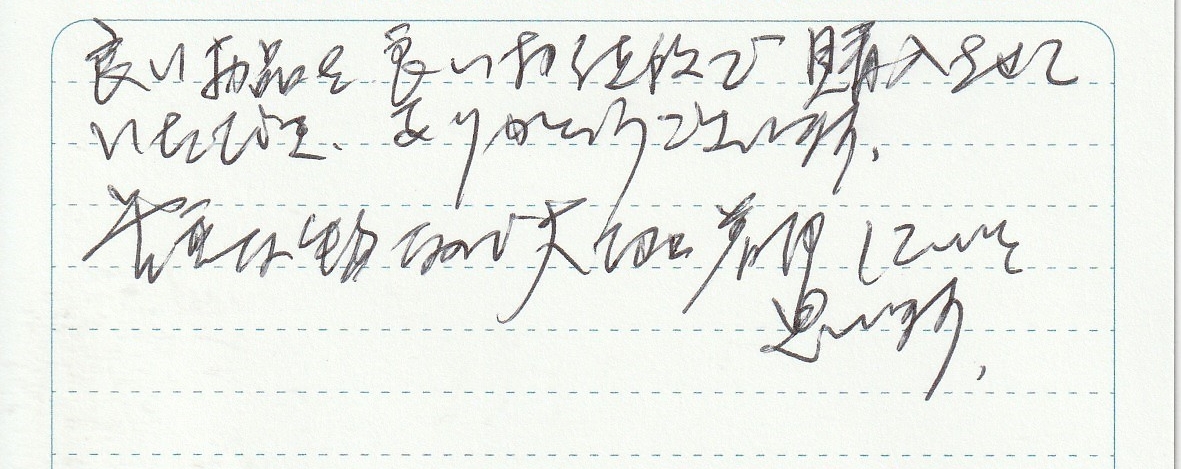 良い物品を良いお値段で購入させて
いただき、ありがとうございます。
貴重な物なので大切に着用したいと
思います。